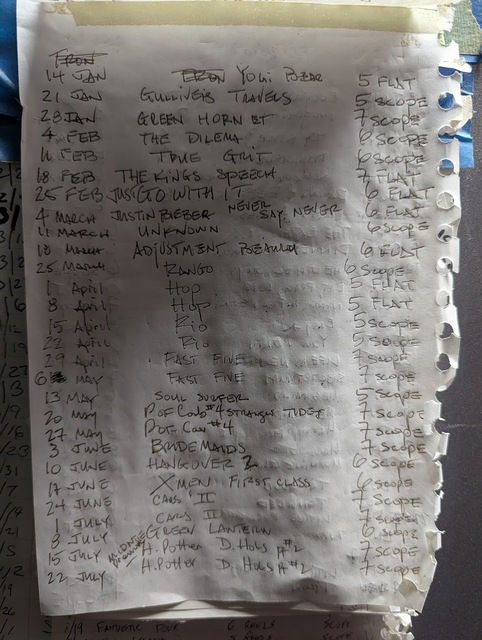 TRON
14 JAN TRON YOGI BEAR 5 FLAT
21 JAN GULLIVERS TRAVELS 5 SCOPE
28 JAN GREEN HORNET 7 SCOPE
4 FEB THE DILEMA 6 SCOPE
11 FEB TRUE GRIT 6 SCOPE
18 FEB THE KINGS SPEECH 7 FLAT
25 FEB JUST GO WITH IT 6 FLAT
4 MARCH JUSTIN BIEBER NEVER SAY NEVER 6 FLAT
11 MARCH UNKNOWN 6 SCOPE
18 MARCH ADJUSTMENT BEAURU 6 FLAT
25 MARCH RANGO 6 SCOPE
1 April HOP 5 FLAT
8 April HOP 5 FLAT
15 April RIO 5 SCOPE
22 April RIO 5 SCOPE
29 April FAST FIVE 7 SCOPE
6 MAY FAST FIVE 7 SCOPE
13 MAY SOUL SURFER 5 SCOPE
20 MAY P OF Carib #4 STRANGER TIDES 7 SCOPE
27 MAY P OF Car #4 7 SCOPE
3 JUNE BRIDEMAIDS 7 SCOPE
10 JUNE HANGOVER 2 6 SCOPE
17 JUNE X MEN FIRST CLASS 7 SCOPE
24 JUNE CARS II 7 SCOPE
1 JULY CARS II 7 SCOPE
8 JULY GREEN LANTERN 6 SCOPE
15 JULY H. Potter D. Hols P #2 7 SCOPE
22 JULY H. Potter D. Hols P #2 7 SCOPE
5 1/19 FANTASTIC FOUR 6 REELS SCOPE